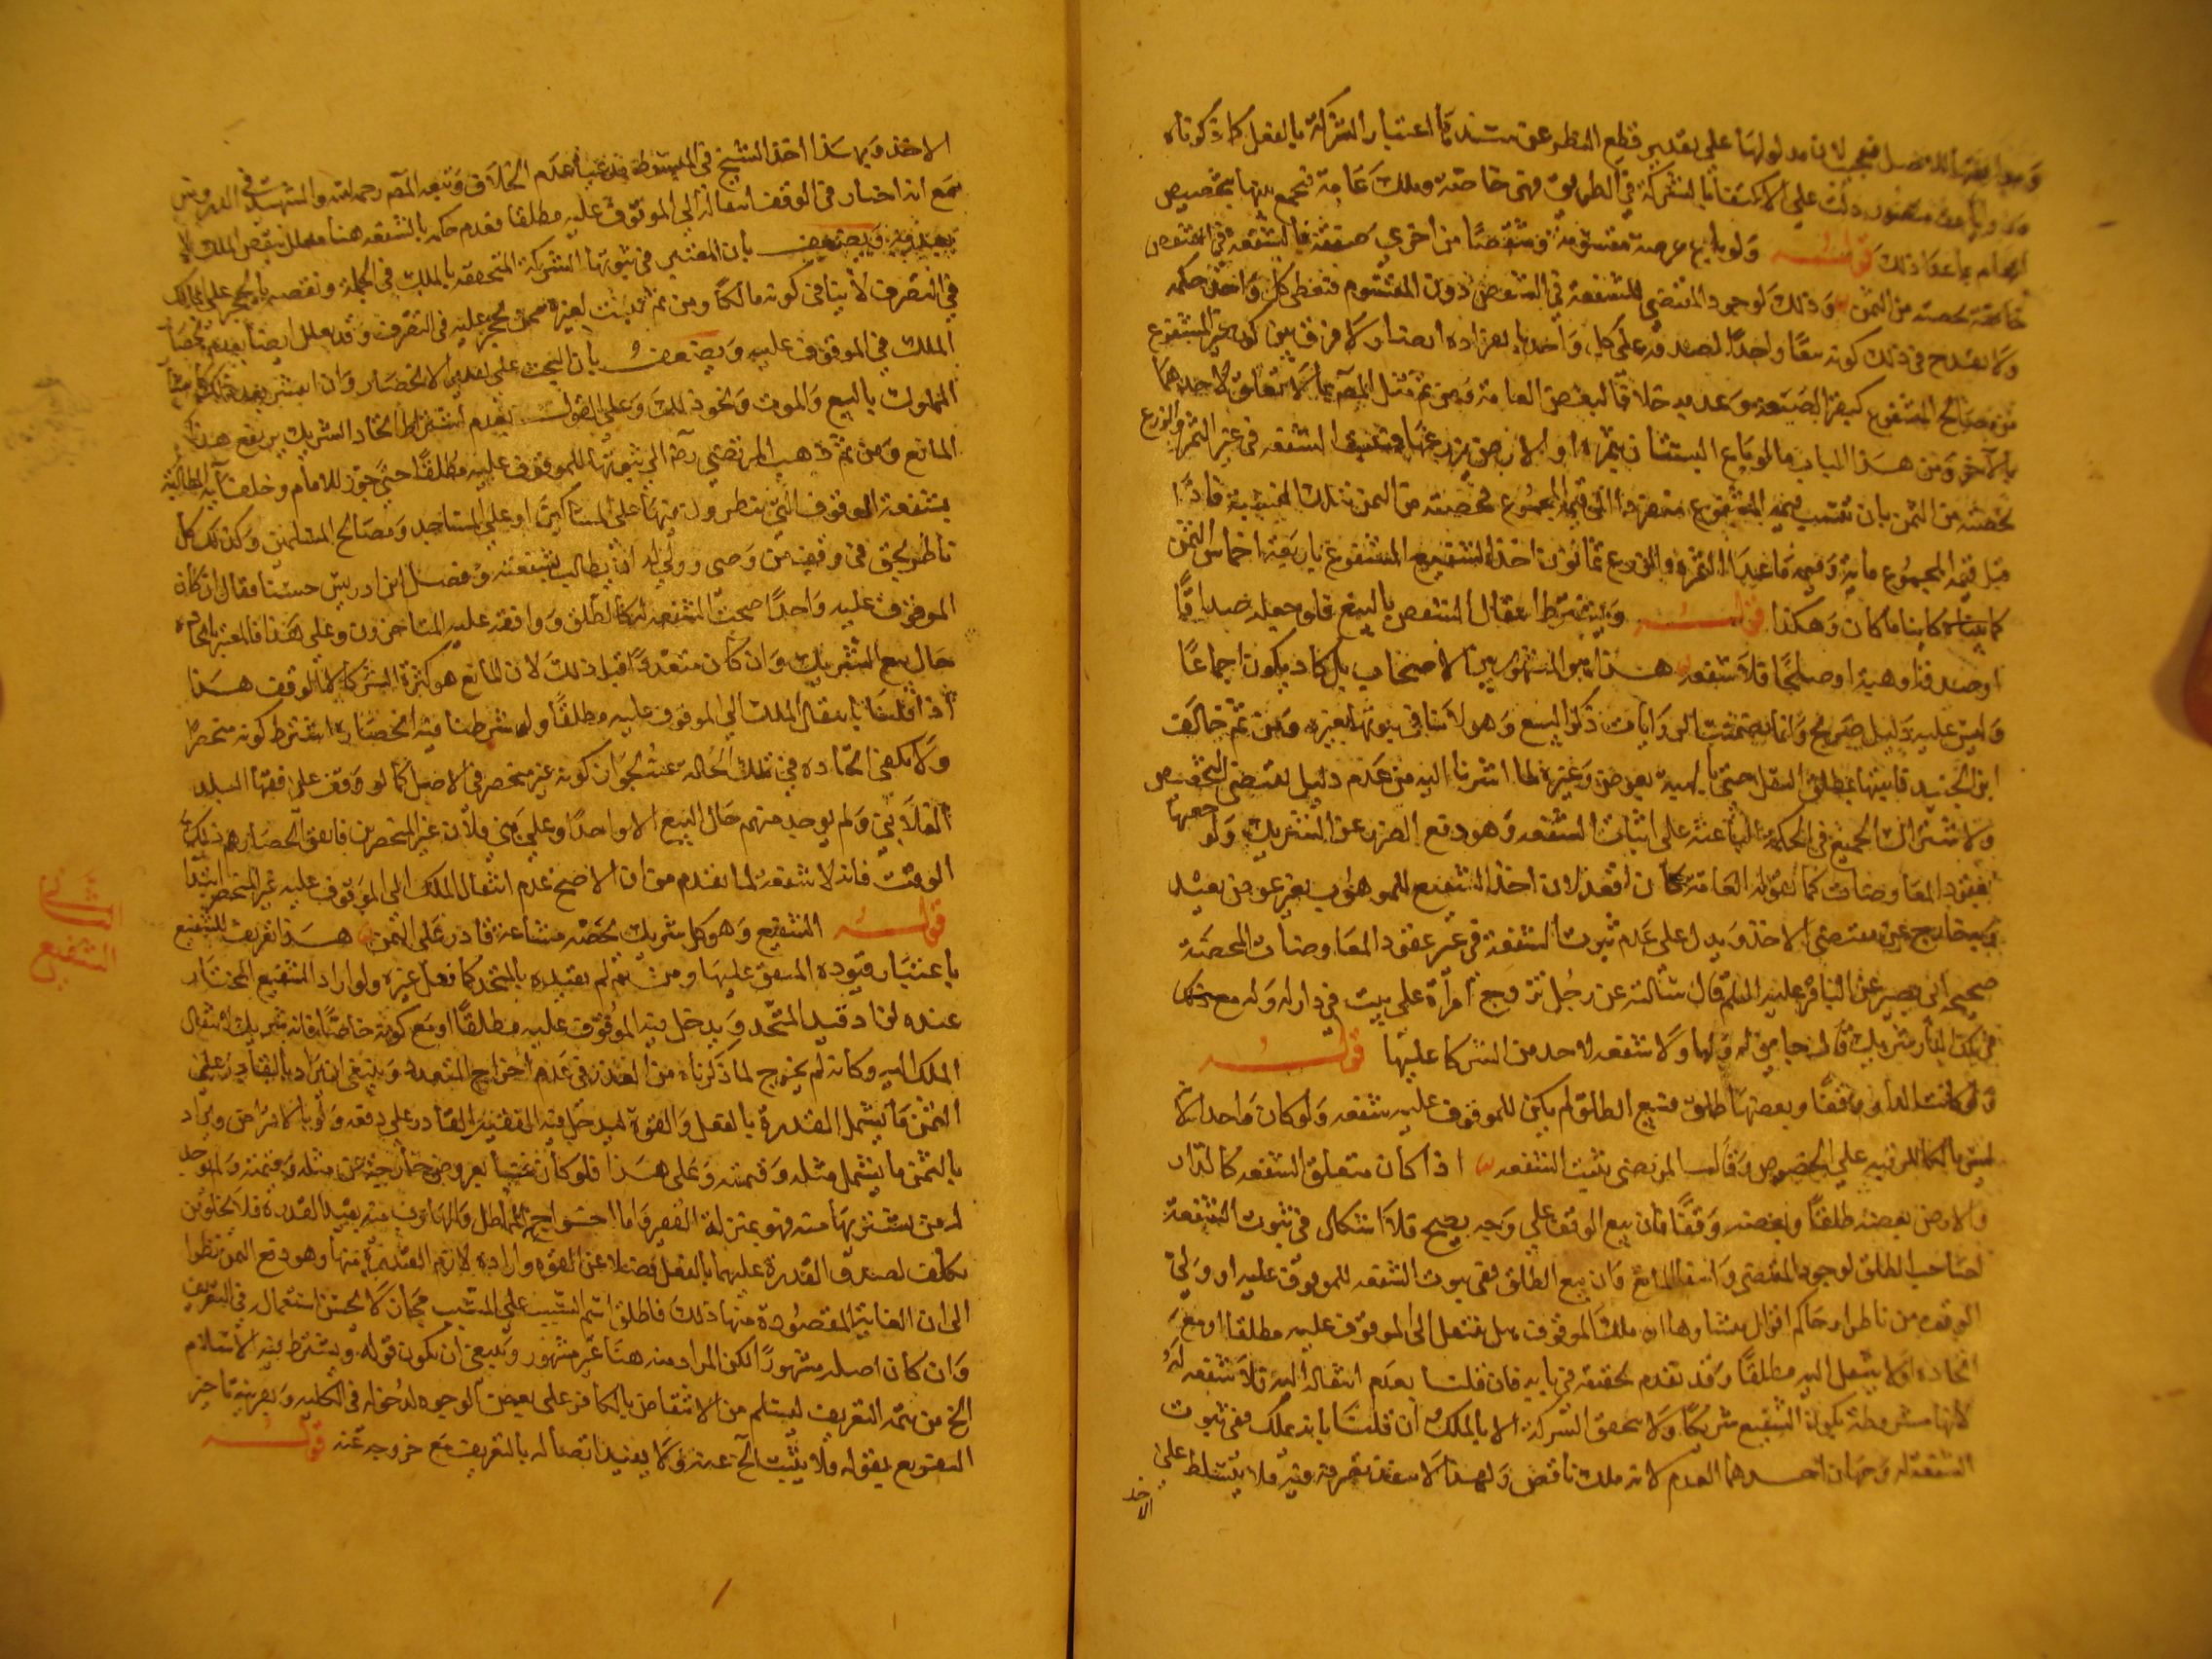 وموافقتها للاصل فيجب لان مدلولها على تقدير قطع النظر عن سندها اعتبار الشركة بالفعل كما ذكرناه
ورواية منصور دلت على الاكتفا بالشركة في الطريق فهي خاصة وتلك عامة فيجمع بينها بتخصيص
العام بما عدا ذلك قوله ولو باع عرصة مقسومة وشقصا من اخرى صفقة فالشفعة في الشقص
خاصة بحصته من الثمن وذلك لوجود المقتضي للشفعة في الشقص دون المقسوم فيعطى كل واحد حكمه
ولا يقدح في ذلك كونه بيعا واحدا لصدقه على كل واحد بانفراده ايضا ولا فرق بين كون غير المشفوع
من مصالح المشفوع كبقر الضيعة وعدمه خلافا لبعض العامة ومن ثم مثل المصنف بما لا يتعلق لاحدهما
بالآخر ومن هذا الباب ما لو باع البستان بثمره او الارض بزرعها فتثبت الشفعة في غير الثمر والزرع
بحصته من الثمن بان تنسب قيمة المشفوع منفردا الى قيمة المجموع فحصته من الثمن بتلك النسبة فاذا
قيل قيمة المجموع ماية وقيمة ما عدا الثمرة والزرع ثمانون اخذ الشفيع المشفوع باربعة اخماس الثمن
كائنا ما كان وهكذا قوله ويشترط انتقال الشقص بالبيع فلو جعله صداقا
او صدقة او هبة او صلحا فلا شفعة هذا هو المشهور بين الاصحاب بل كاد يكون اجماعا
وليس عليه دليل صريح وانما تضمنت الروايات ذكر البيع وهو لا ينافي ثبوتها بغيره ومن ثم خالف
ابن الجنيد فاثبتها بمطلق النقل حتى بالهبة بعوض وغيره لما اشرنا اليه من عدم دليل يقتضي التخصيص
ولاشتراك الجميع في الحكمة الباعثة على اثبات الشفعة وهو دفع الضرر عن الشريك ولو خصها
بعقود المعاوضات كما تقوله العامة كان اقعد لان اخذ الشفيع للموهوب بغير عوض بعيد
وبه خارج عن مقتضى الاخذ ويدل على عدم ثبوت الشفعة في غير عقود المعاوضات المحضة
صحيحة ابي بصير عن الباقر عليه السلم قال سالته عن رجل تزوج امراة على بيت في دار له وله مع ذلك
في تلك الدار شريك قال جايز له ولها ولا شفعة لاحد من الشركا عليها قوله
ولو كانت الدار وقفا وبعضها طلق فبيع الطلق لم يكن للموقوف عليه شفعة ولو كان واحدا لانه
ليس مالكا للرقبة على الخصوص وقال المرتضى تثبت الشفعة اذا كان متعلق الشفعة كالدار
والارض بعضه طلقا وبعضه وقفا فان بيع الوقف على وجه يصح فلا اشكال في ثبوت الشفعة
لصاحب الطلق لوجود المقتضي وانتفا المانع وان بيع الطلق ففي ثبوت الشفعة للموقوف عليه او ولي
الوقف من ناظر او حاكم اقوال منشاوها ان ملك الموقوف هل ينتقل الى الموقوف عليه مطلقا او مع
اتحاده او لا ينتقل اليه مطلقا وقد تقدم تحقيقه في بابه فان قلنا بعدم انتقاله اليه فلا شفعة له
لانها مشروطة بكون الشفيع شريكا ولا تحقق الشركة الا بالملك وان قلنا بانه يملك ففي ثبوت
الشفعة له وجهان احدهما العدم لانه ملك ناقص ولهذا لا ينفذ تصرفه فيه فلا يتسلط على
الاخذ
الاخذ وبهذا اخذ الشيخ في المبسوط مدعيا عدم الخلاف وتبعه المصنف رحمه الله والشهيد في الدروس
مع انه اختار في الوقف انتقاله الى الموقوف عليه مطلقا فقدم حكمه بالشفعة هنا معلل بنقص الملك لا
بعدمه ويضعف بان المعتبر في ثبوتها الشركة المتحققة بالملك في الجملة ونقصه بالحجر على المالك
في التصرف لا ينافي كونه مالكا ومن ثم تثبت لغيره ممن يحجر عليه في التصرف وقد يعلل ايضا بعدم انحصار
الملك في الموقوف عليه ويضعف بان البحث على تقدير الانحصار وان انتشر بعد ذلك كما ينتشر
المملوك بالبيع والموت ونحو ذلك وعلى القول بعدم اشتراط اتحاد الشريك يرتفع هذا
المانع ومن ثم ذهب المرتضى ره الى ثبوتها للموقوف عليه مطلقا حتى جوز للامام وخلفائه المطالبة
بشفعة الوقوف التي ينظرون فيها على المساكين او على المساجد ومصالح المسلمين وكذلك كل
ناظر بحق في وقف من وصي وولي له ان يطالب بشفعته وفصل ابن ادريس حسنا فقال ان كان
الموقوف عليه واحدا صحت الشفعة لمالك الطلق ووافقه عليه المتاخرون وعلى هذا فالمعتبر اتحاده
حال بيع الشريك وان كان متعددا قبل ذلك لان المانع هو كثرة الشركا لا الوقف هذا
اذا قلنا بانتقال الملك الى الموقوف عليه مطلقا ولو شرطنا فيه انحصاره اشترط كونه منحصرا
ولا يكفي اتحاده في تلك الحالة عندنا لجواز كونه غير منحصر في الاصل كما لو وقف على فقها البلد
الفلاني ولم يوجد منهم حال البيع الا واحدا وعلى بني فلان غير المنحصرين فاتفق انحصارهم ذلك
الوقت فانه لا شفعة لما تقدم من ان الاصح عدم انتقال الملك الى الموقوف عليه غير المنحصر ابتدا
قوله الشفيع وهو كل شريك بحصة مشاعة قادر على الثمن هذا تعريف للشفيع
باعتبار قيوده المتفق عليها ومن ثم لم يقيده بالمتحد كما فعل غيره ولو اراد الشفيع المختار
عنده لزاد قيد المتحد ويدخل فيه الموقوف عليه مطلقا او مع كونه خاصا فانه شريك لانتقال
الملك اليه وكانه لم يخرج لما ذكرناه من العذر في عدم اخراج المتعدد وينبغي ان يراد بالقادر على
الثمن ما يشمل القدرة بالفعل والقوة ليدخل فيه الفقير القادر على دفعه ولو بالاقتراض ويراد
بالثمن ما يشمل مثله وقيمته وعلى هذا فلو كان غنيا بعروض خارجة عن مثله وقيمته ولم يوجد
له من يشتريها منه فهو بمنزلة الفقير واما اخراج المماطل والهارب منه بقيد القدرة فلا يخلو من
تكلف لصدق القدرة عليهما بالفعل فضلا عن القوة وارادة لازم القدرة منها وهو دفع الثمن نظرا
الى ان الغاية المقصودة منها ذلك فاطلق اسم السبب على المسبب مجاز لا يحسن استعماله في التعريف
وان كان اصله مشهورا لكن المراد منه هنا غير مشهور وينبغي ان يكون قوله ويشترط فيه الاسلام
الخ من تتمة التعريف ليسلم من الانتقاض بالكافر على بعض الوجوه لدخوله في الكلية وبقرينة تاخير
التفريع بقوله فلا تثبت الخ عنه ولا يفيد اتصاله بالتعريف مع خروجه عنه قوله
الثاني
الشفيع